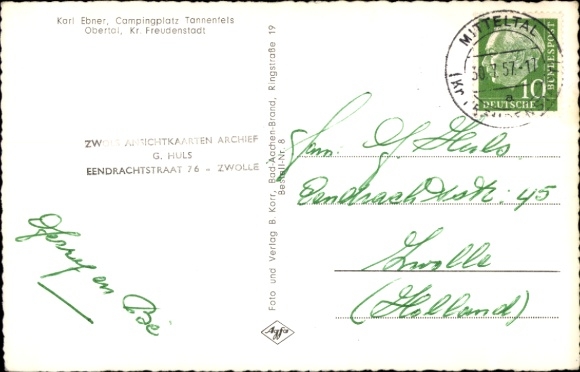 Karl Ebner, Campingplatz Tannenfels
Obertal, Kr. Freudenstadt
ZWOLS ANSICHTKAARTEN ARCHIEF
G. HULS
EENDRACHTSTRAAT 76 - ZWOLLE
Gerry en Bé
Foto und Verlag B. Korr, Bad-Aachen-Brand, Ringstraße 19
Bestell-Nr. 8
Agfa
MITTELTAL
30.7.57-17
a
10
DEUTSCHE
BUNDESPOST
Fam. G. Huls
Eendrachtstr. 45
Zwolle
(Holland)